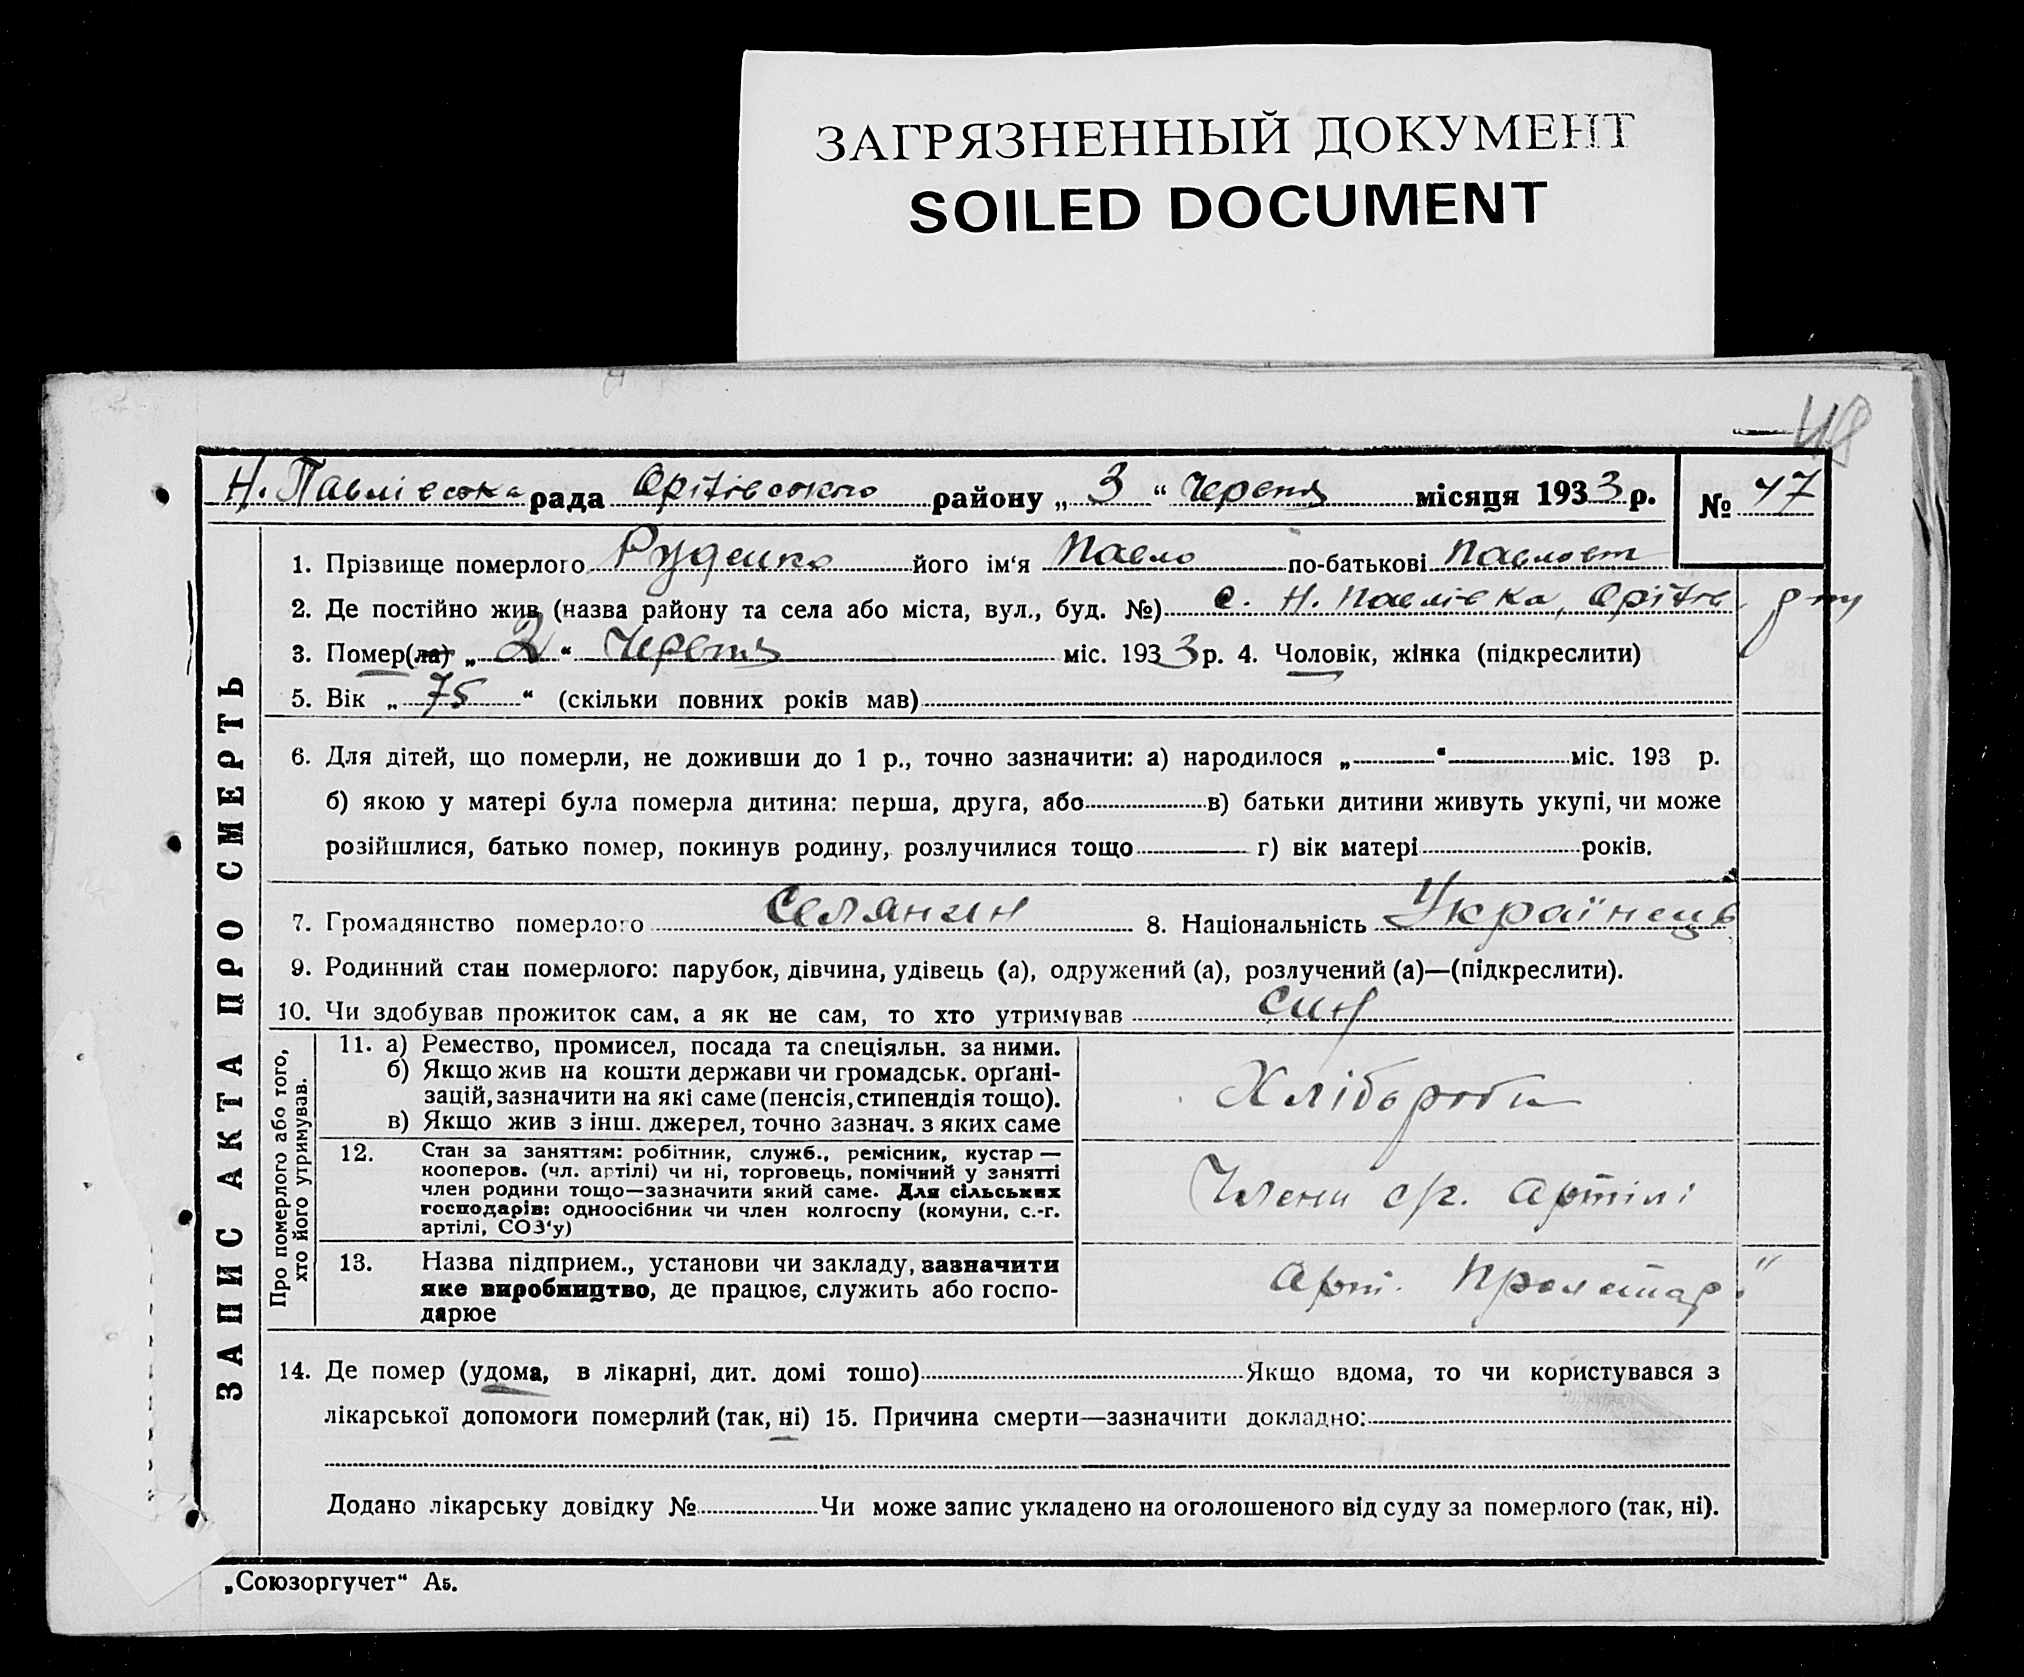 ЗАГРЯЗНЕННЫЙ ДОКУМЕНТ
SOILED DOCUMENT
48
Н. Павлівська рада Орітівського району „ 3 “ Червня місяця 1933 р. № 47
ЗАПИС АКТА ПРО СМЕРТЬ
1. Прізвище померлого Руденко його ім‘я Павло по-батькові Павлов
2. Де постійно жив (назва району та села або міста, вул., буд. №) с. Н. Павлівка, Орітів
3. Помер(ла) „ 2 “ Червня міс. 1933 р. 4. Чоловік, жінка (підкреслити)
5. Вік „ 75 “ (скільки повних років мав)
6. Для дітей, що померли, не доживши до 1 р., точно зазначити: а) народилося „ “ міс. 193 р.
б) якою у матері була померла дитина: перша, друга, або в) батьки дитини живуть укупі, чи може
розійшлися, батько помер, покинув родину, розлучилися тощо г) вік матері років.
7. Громадянство померлого Селянин 8. Національність Українець
9. Родинний стан померлого: парубок, дівчина, удівець (а), одружений (а), розлучений (а)—(підкреслити).
10. Чи здобував прожиток сам, а як не сам, то хто утримував син
Про померлого або того,
хто його утримував.
11. а) Ремество, промисел, посада та спеціяльн. за ними.
б) Якщо жив на кошти держави чи громадськ. орґані-
зацій, зазначити на які саме (пенсія, стипендія тощо).
в) Якщо жив з інш. джерел, точно зазнач. з яких саме
Хлібороби
12. Стан за заняттям: робітник, служб., ремісник, кустар —
кооперов. (чл. артілі) чи ні, торговець, помічний у занятті
член родини тощо—зазначити який саме. Для сільських
господарів: одноосібник чи член колгоспу (комуни, с.-г.
артілі, СОЗ‘у)
Члени с/г. артілі
13. Назва підприєм., установи чи закладу, зазначити
яке виробництво, де працює, служить або госпо-
дарює
Арт. Пролетар "
14. Де помер (удома, в лікарні, дит. домі тошо) Якщо вдома, то чи користувався з
лікарської допомоги померлий (так, ні) 15. Причина смерти—зазначити докладно:
Додано лікарську довідку № Чи може запис укладено на оголошеного від суду за померлого (так, ні).
„Союзоргучет“ А5.